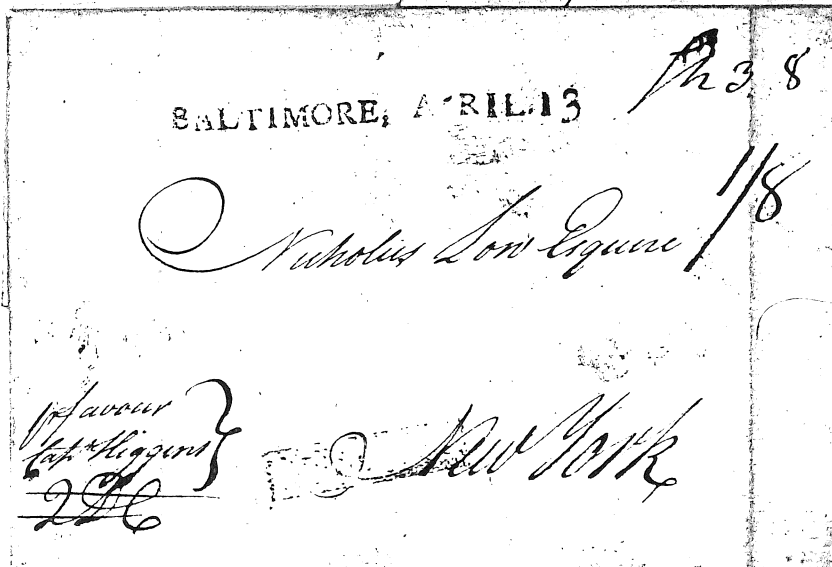 BALTIMORE, APRIL.13
3. 8
1/8
Nicholas Low Esquire
favour
Capt Higgins
New York